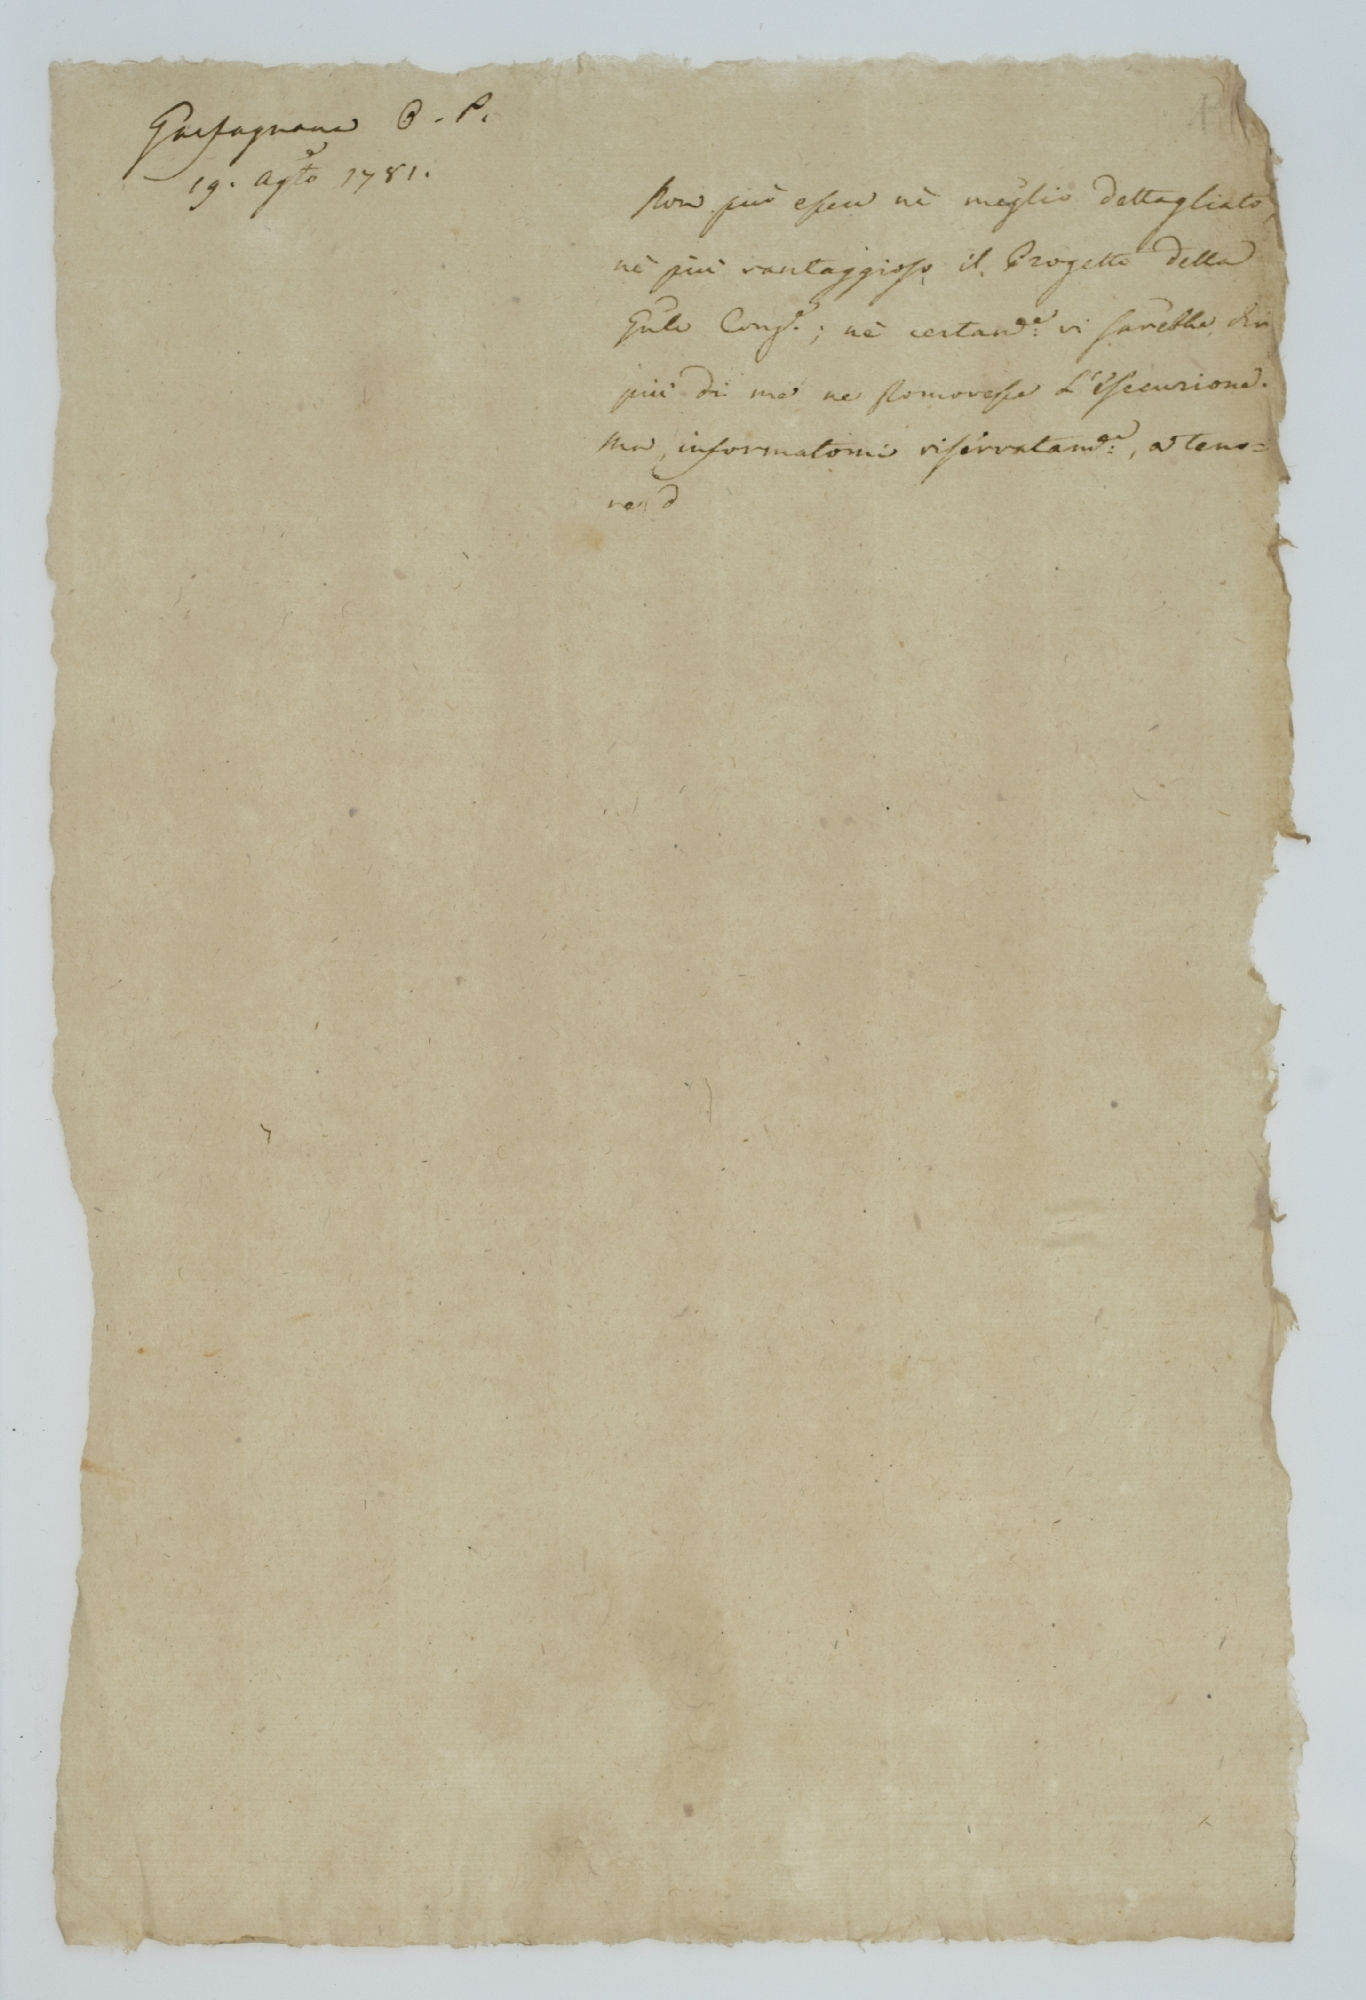 Garfagnana B. P.
19. Agto 1781.
Non può essere nè meglio dettagliato,
nè più vantaggioso il Progetto della
Gnle Congne; nè certame: vi sarebbe chi
più di me ne promovesse l'esecuzione.
Ma, informatomi riservatame:, a teno=
re d